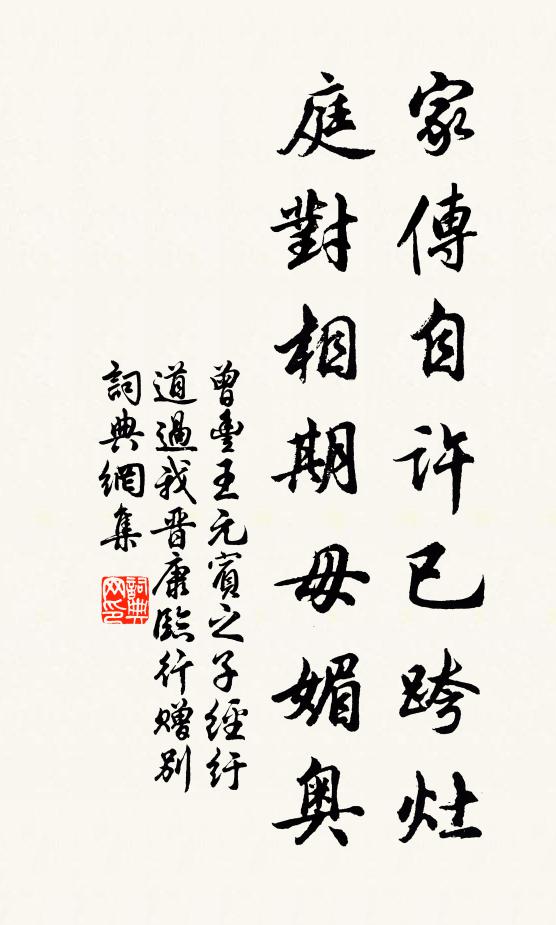 家傳自許已跨灶
庭對相期毋媚奥
曾豐王元賓之子經紆
道過我晋康臨行贈別
詞典網集
詞典